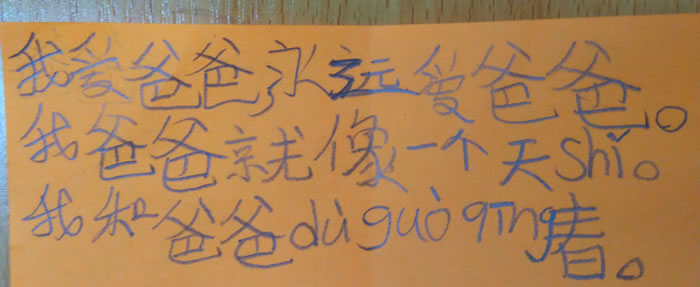 我爱爸爸永远爱爸爸。
我爸爸就像一个天shǐ。
我和爸爸dùguòqīng春。